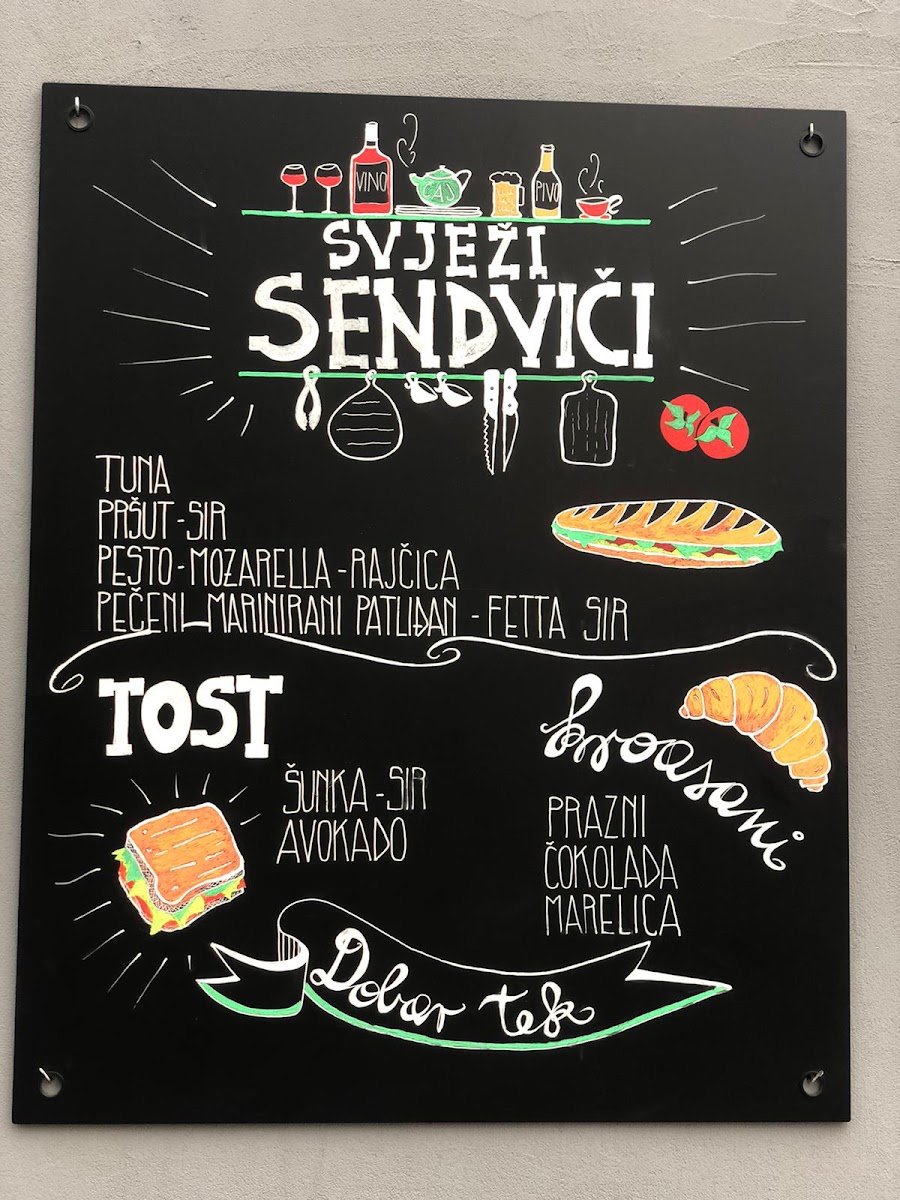 VINO
ČAJ
PIVO
SVJEŽI
SENDVIČI
TUNA
PRŠUT - SIR
PESTO - MOZARELLA - RAJČICA
PEČENI MARINIRANI PATLIĐAN - FETTA SIR
TOST
ŠUNKA - SIR
AVOKADO
kroasani
PRAZNI
ČOKOLADA
MARELICA
Dobar tek